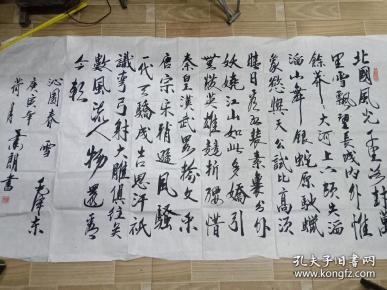 北國風光千里冰封萬
里雪飄望長城内外惟
餘莽莽大河上下頓失滔
滔山舞銀蛇原馳蠟
象欲與天公試比高須
晴日看紅裝素裹分外
妖嬈江山如此多嬌引
無數英雄競折腰惜
秦皇漢武略輸文采
唐宗宋祖稍遜風騷
一代天驕成吉思汗祇
識彎弓射大雕俱往矣
數風流人物還看
今朝
沁園春 雪 毛澤東
庚寅年
荷月 朗書
孔夫子旧书网